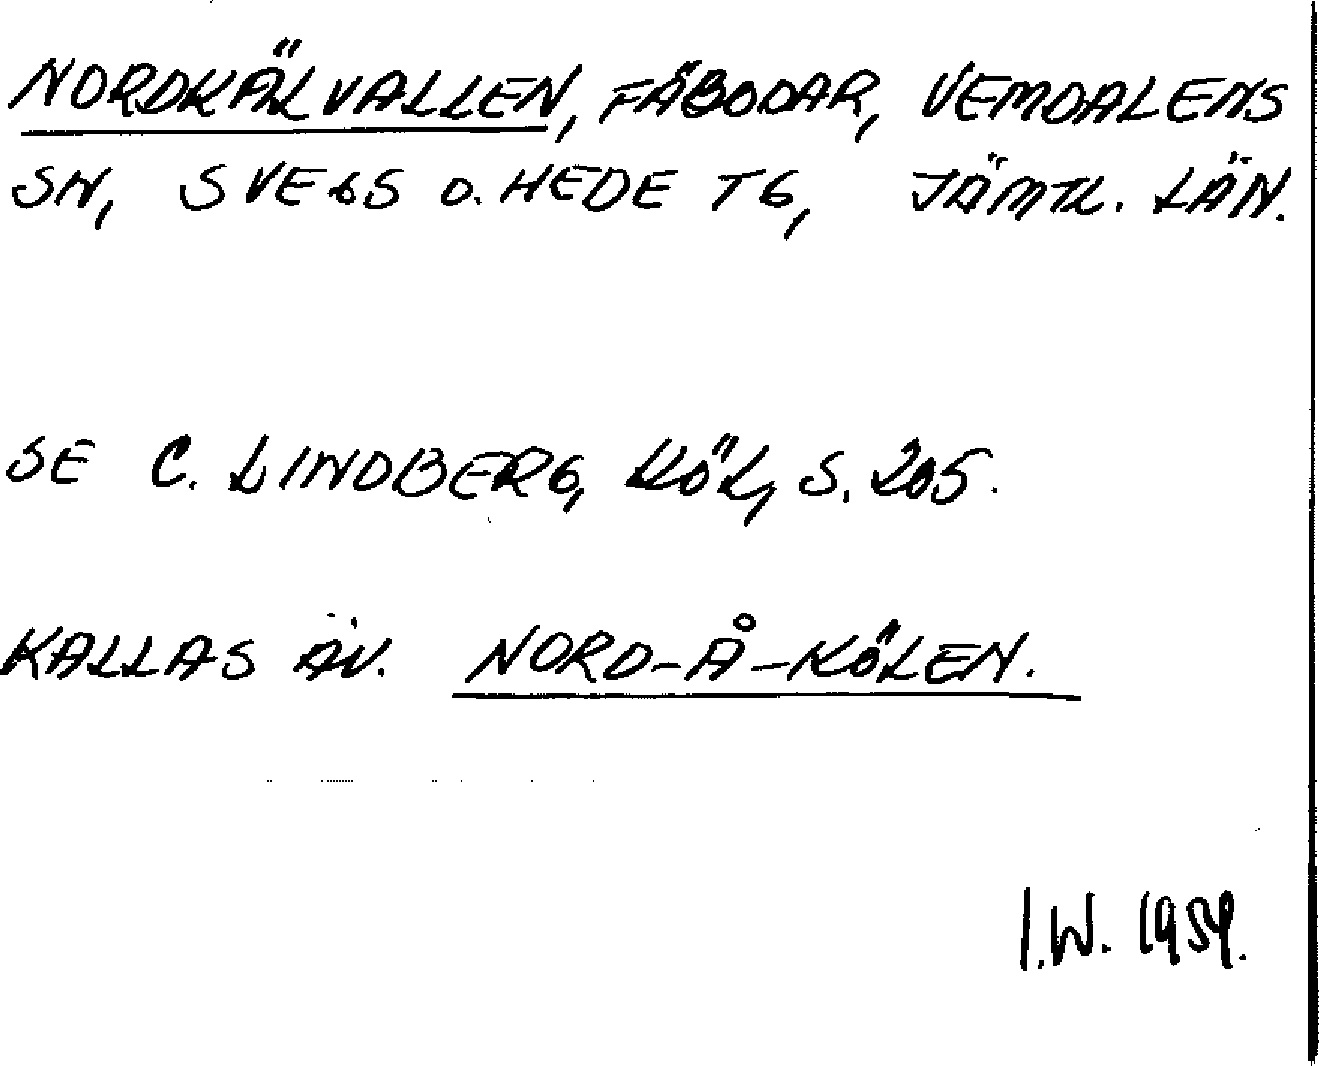 NORDKÄLVALLEN, FÄBODAR, VEMDALENS
SN, SVEGS O. HEDE TG, JÄMTL. LÄN.
SE C. LINDBERG, KÖL, S. 205.
KALLAS ÄV. NORD-Å-KÖLEN.
I.W. 1959.